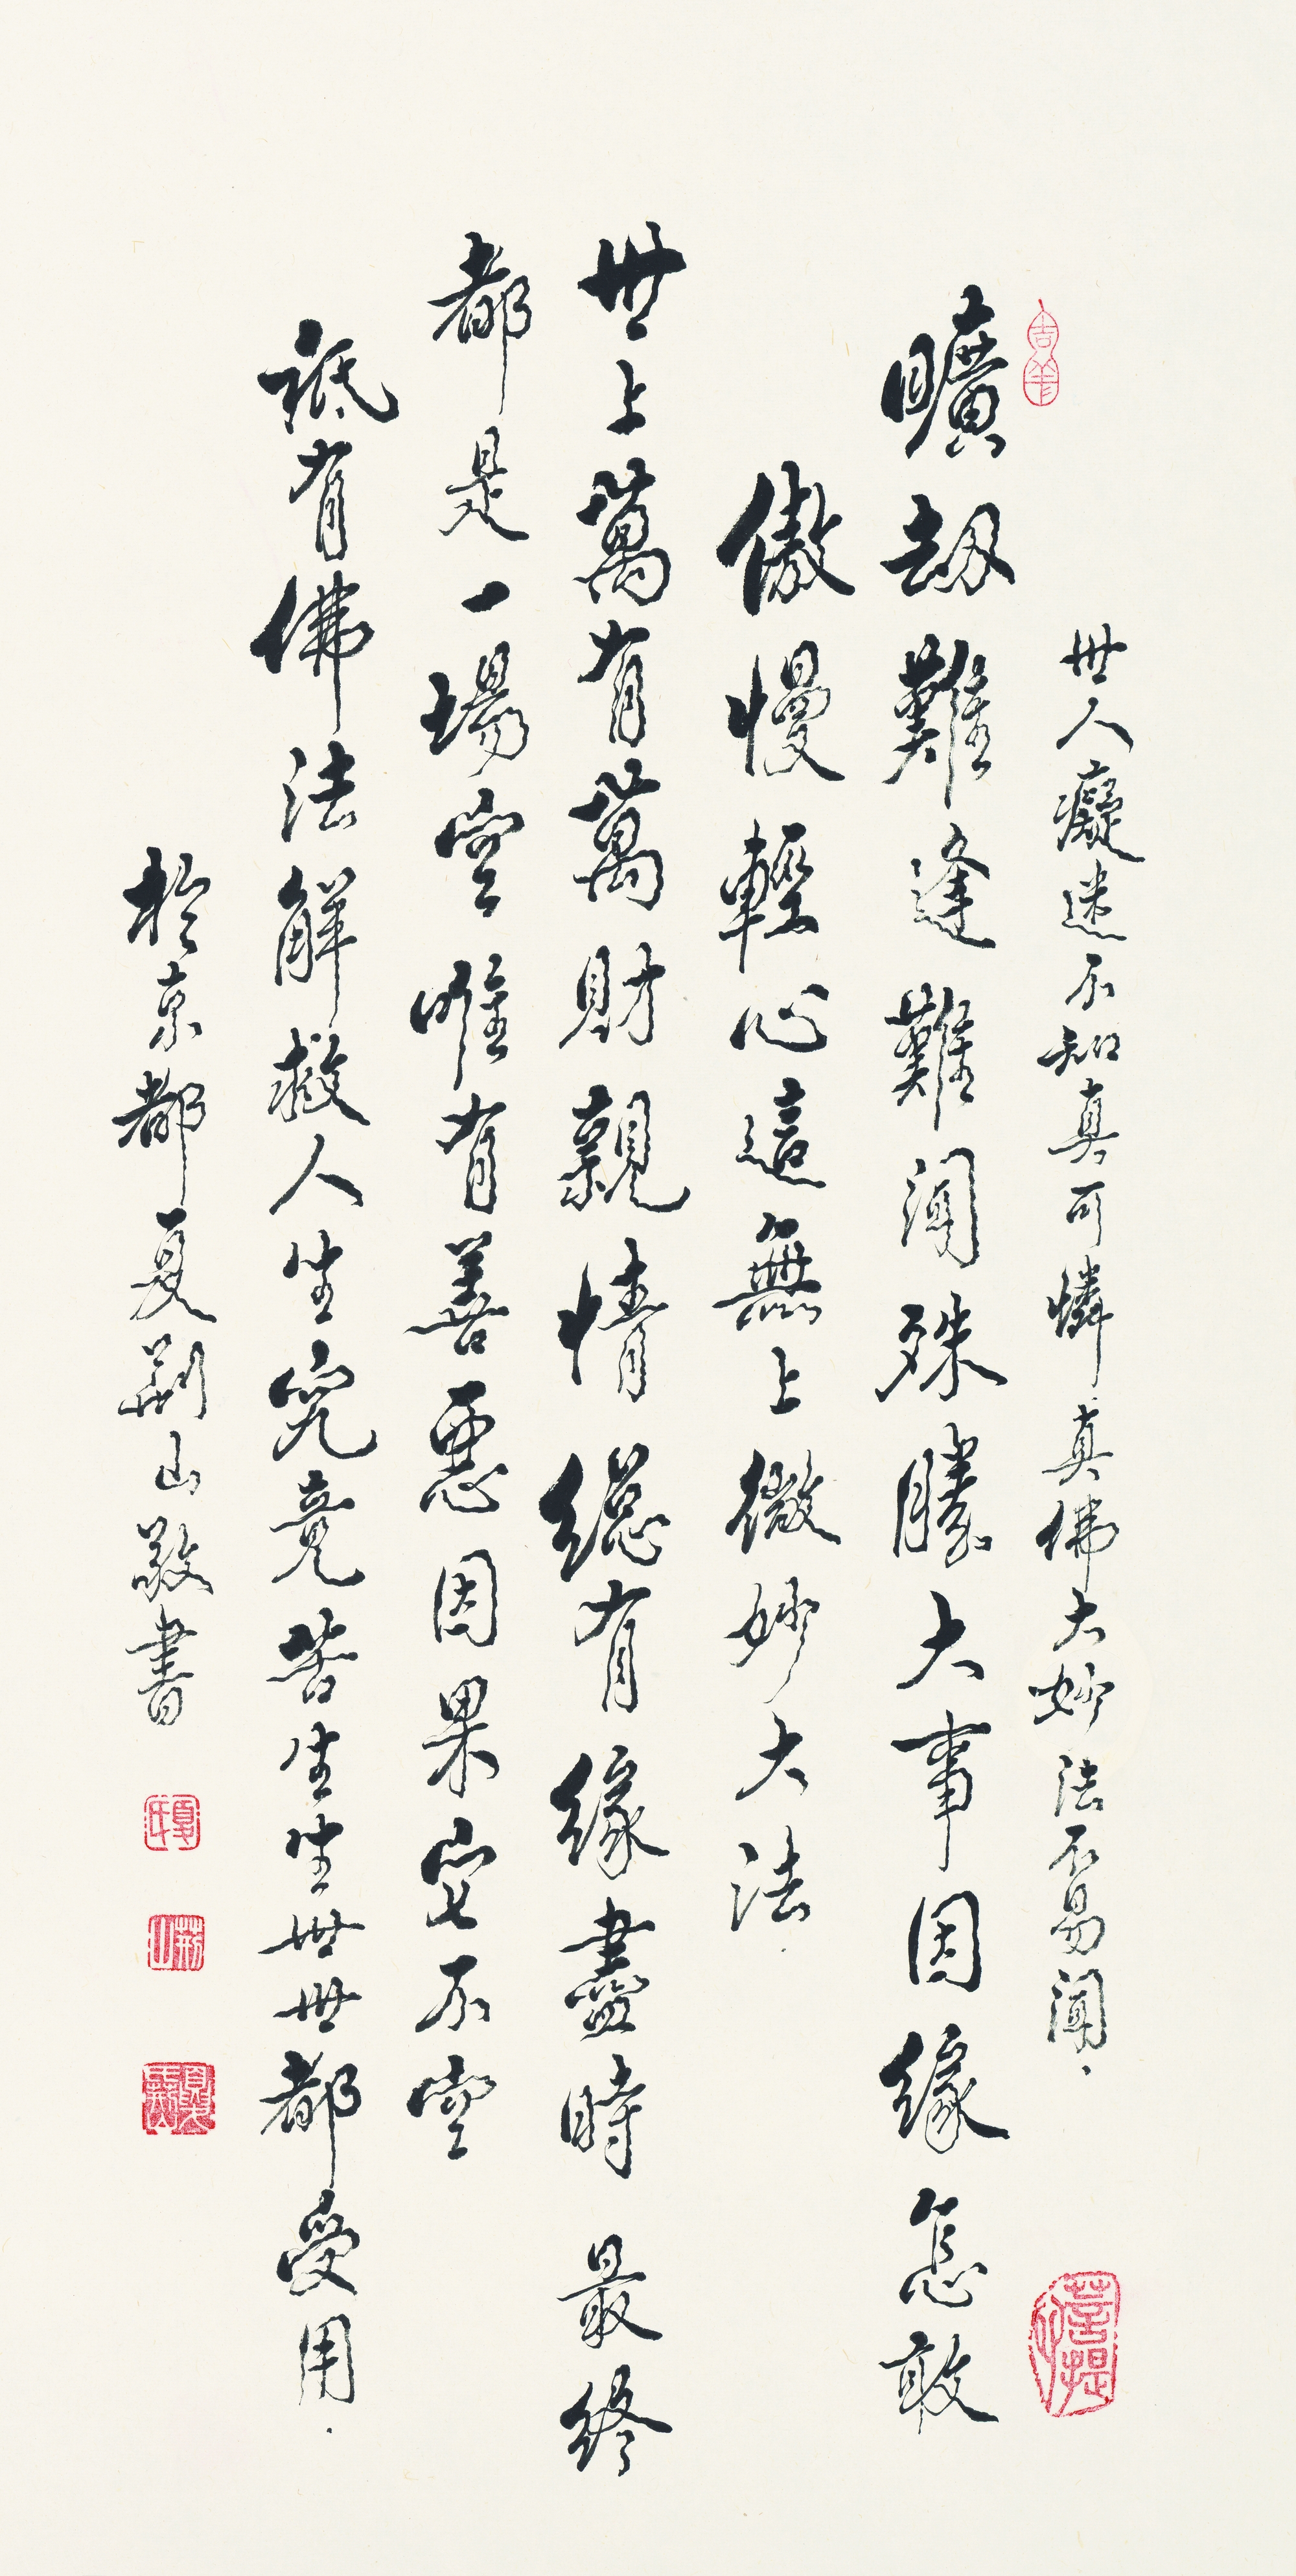 世人癡迷不知真可憐真佛大妙法不易聞
曠劫難逢難聞殊勝大事因緣怎敢
傲慢輕心這無上微妙大法
世上萬有萬財親情總有緣盡時最終
都是一場空唯有善惡因果它不空
祇有佛法解救人生究竟苦生生世世都受用
於京都夏荊山敬書
吉羊
夏氏
荊山
夏荊山
菩提